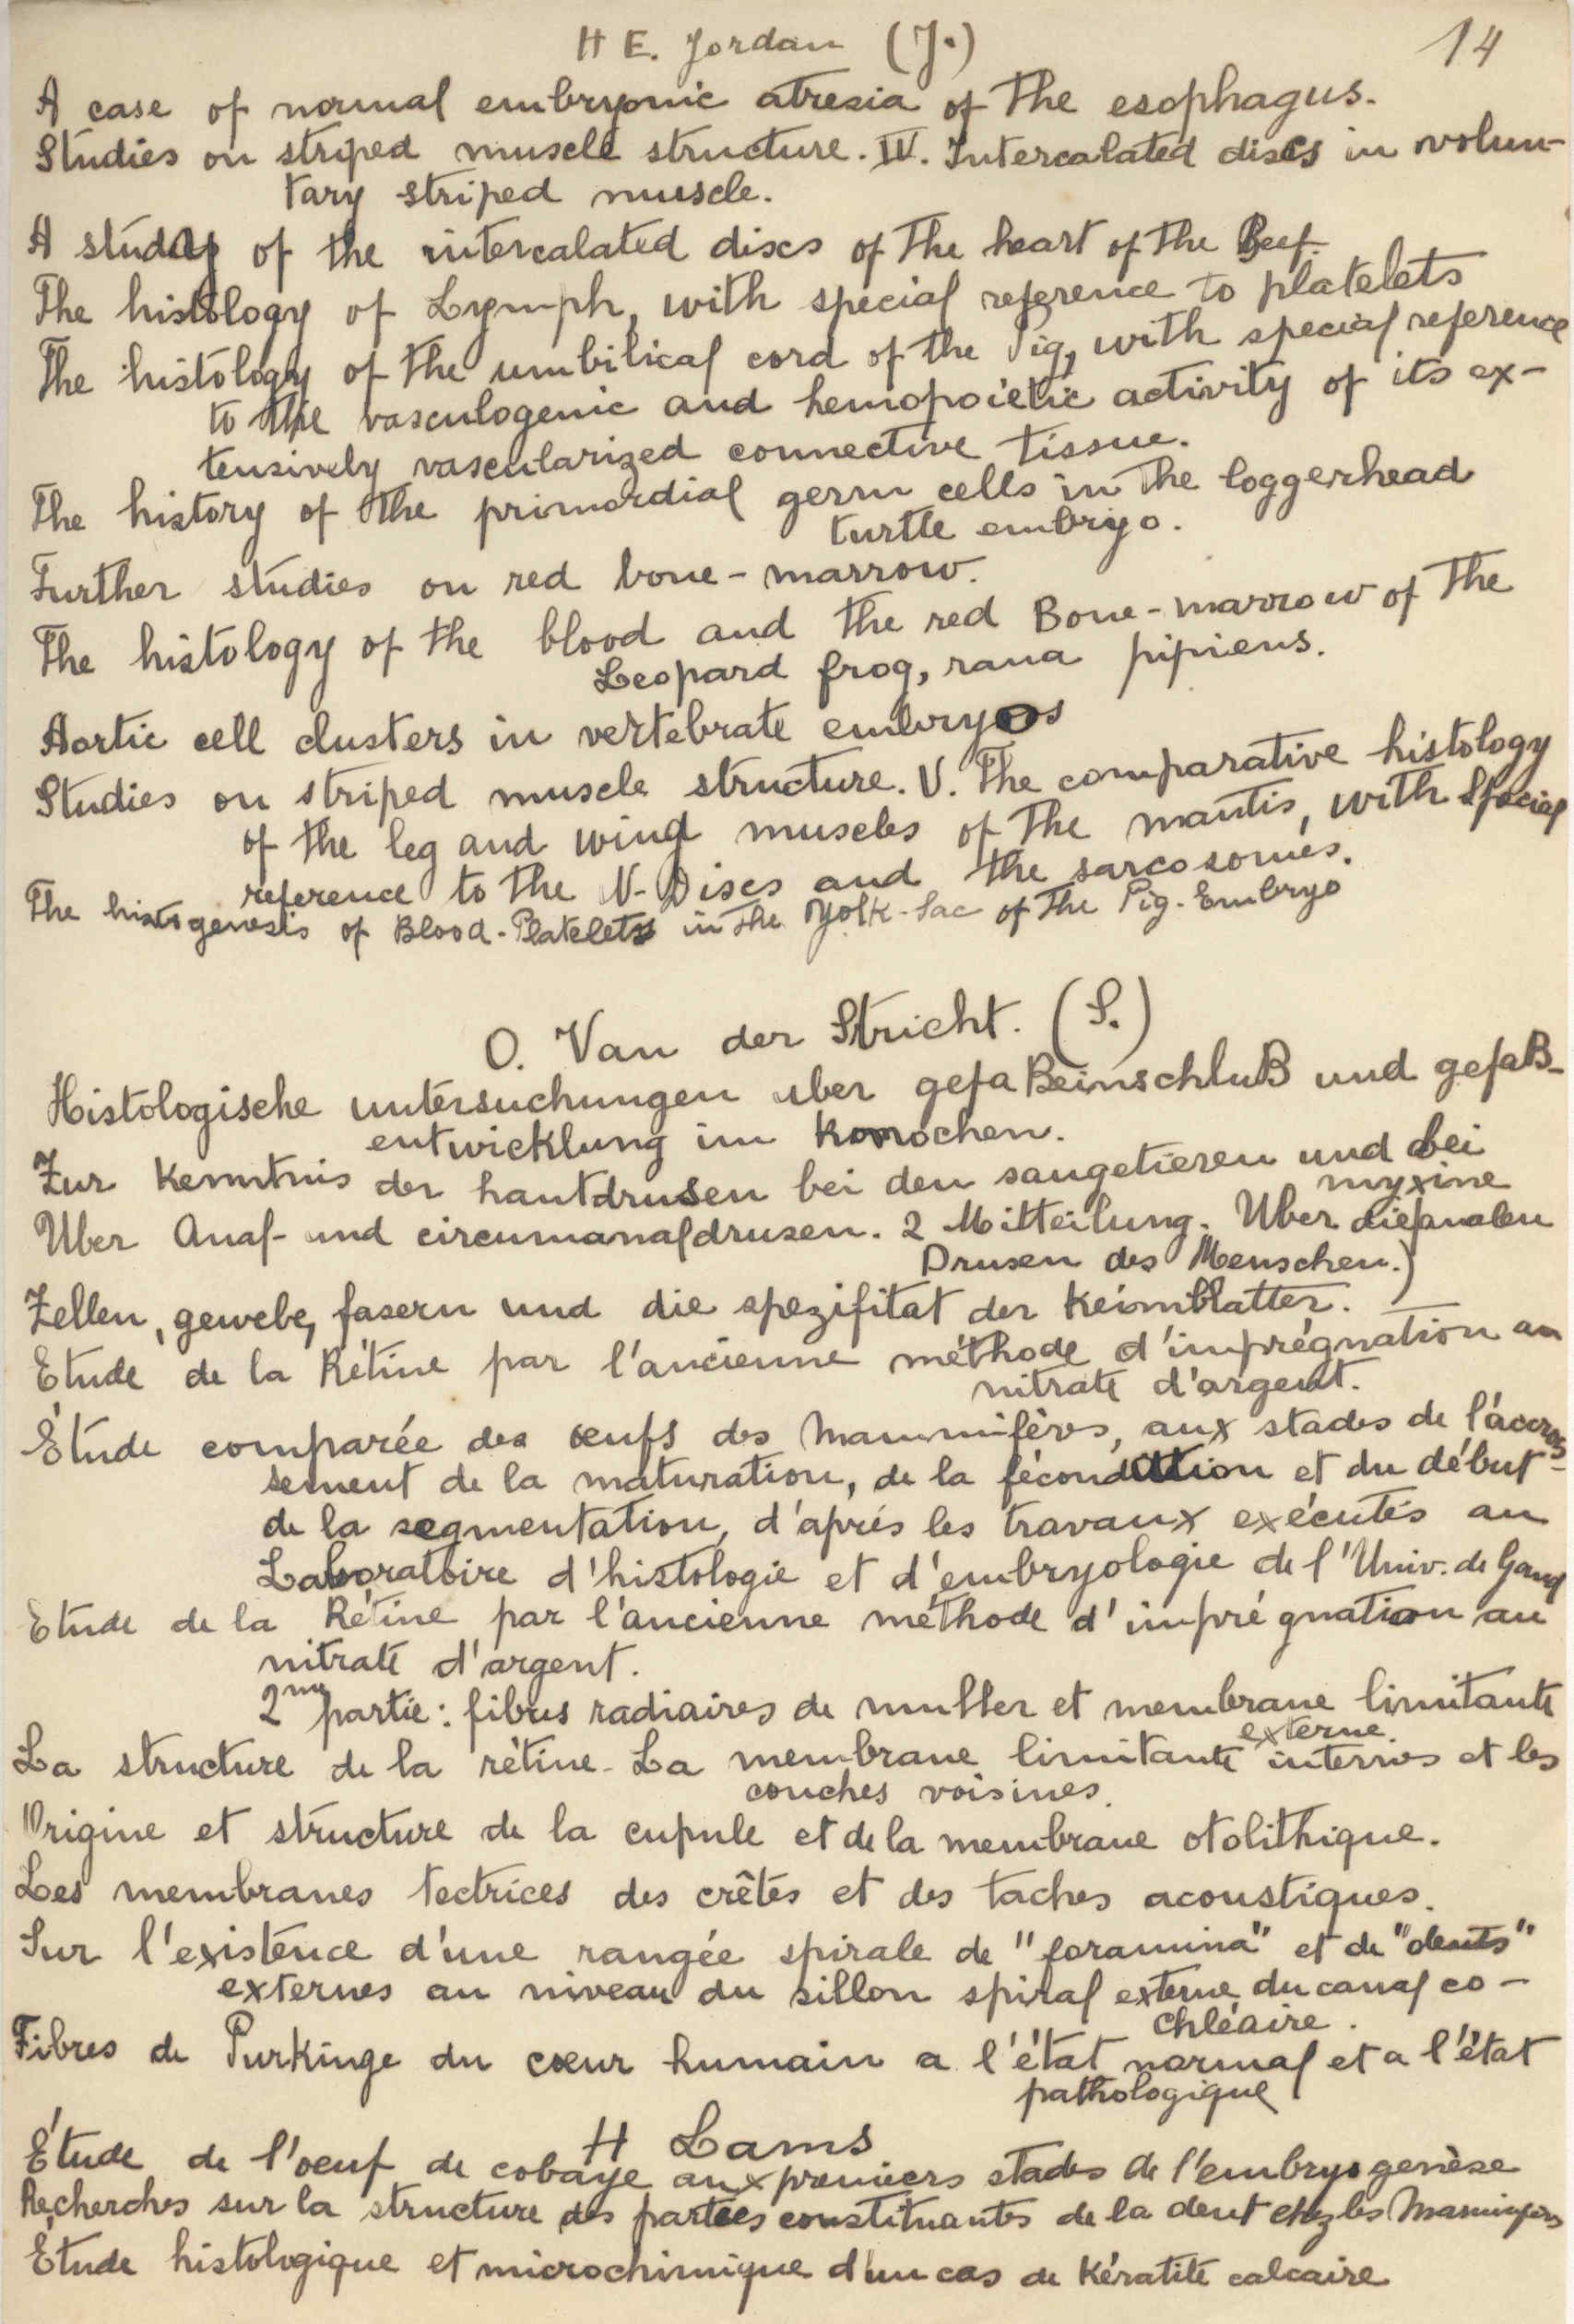 H E. Jordan (J.)
14
A case of normal embryonic atresia of the esophagus.
Studies on striped muscle structure. IV. Intercalated discs in volun-
tary striped muscle.
A study of the intercalated discs of the heart of the Beef.
The histology of Lymph, with special reference to platelets
The histology of the umbilical cord of the Pig, with special reference
to the vasculogenic and hemopoietic activity of its ex-
tensively vascularized connective tissue.
The history of the primordial germ cells in the loggerhead
turtle embryo.
Further studies on red bone-marrow.
The histology of the blood and the red Bone-marrow of the
Leopard frog, rana pipiens.
Aortic cell clusters in vertebrate embryos
Studies on striped muscle structure. V. The comparative histology
of the leg and wing muscles of the mantis, with special
reference to the N-Discs and the sarcosomes.
The histogenesis of Blood-Platelets in the Yolk-Sac of the Pig-Embryo
O. Van der Stricht. (S.)
Histologische untersuchungen uber gefaBeinschluB und gefaB-
entwicklung im knochen.
Zur Kenntnis der hautdrusen bei den saugetieren und bei
myxine
Uber Anal- und circumanaldrusen. 2 Mitteilung. Uber die analen
Drusen des Menschen.)
Zellen, gewebe, fasern und die spezifitat der Keimblatter.
Etude de la Rétine par l'ancienne méthode d'imprégnation au
nitrate d'argent.
Étude comparée des œufs des Mammifères, aux stades de l'accrois
sement de la maturation, de la fécondation et du début-
de la segmentation, d'aprés les travaux exécutés au
Laboratoire d'histologie et d'embryologie de l'Univ. de Gand
Etude de la Rétine par l'ancienne méthode d'imprégnation au
nitrate d'argent.
2me partie: fibres radiaires de muller et membrane limitante
externe.
La structure de la rétine - La membrane limitante internes et les
couches voisines.
Origine et structure de la cupule et de la membrane otolithique.
Les membranes tectrices des crêtes et des taches acoustiques.
Sur l'existence d'une rangée spirale de "foramina" et de "dents"
externes au niveau du sillon spiral externe du canal co-
chléaire.
Fibres de Purkinge du cœur humain a l'état normal et a l'état
pathologique
H Lams
Étude de l'oeuf de cobaye aux premiers stades de l'embryogenèse
Recherches sur la structure des parties constituantes de la dent chez les Mammifères
Étude histologique et microchimique d'un cas de Kératite calcaire